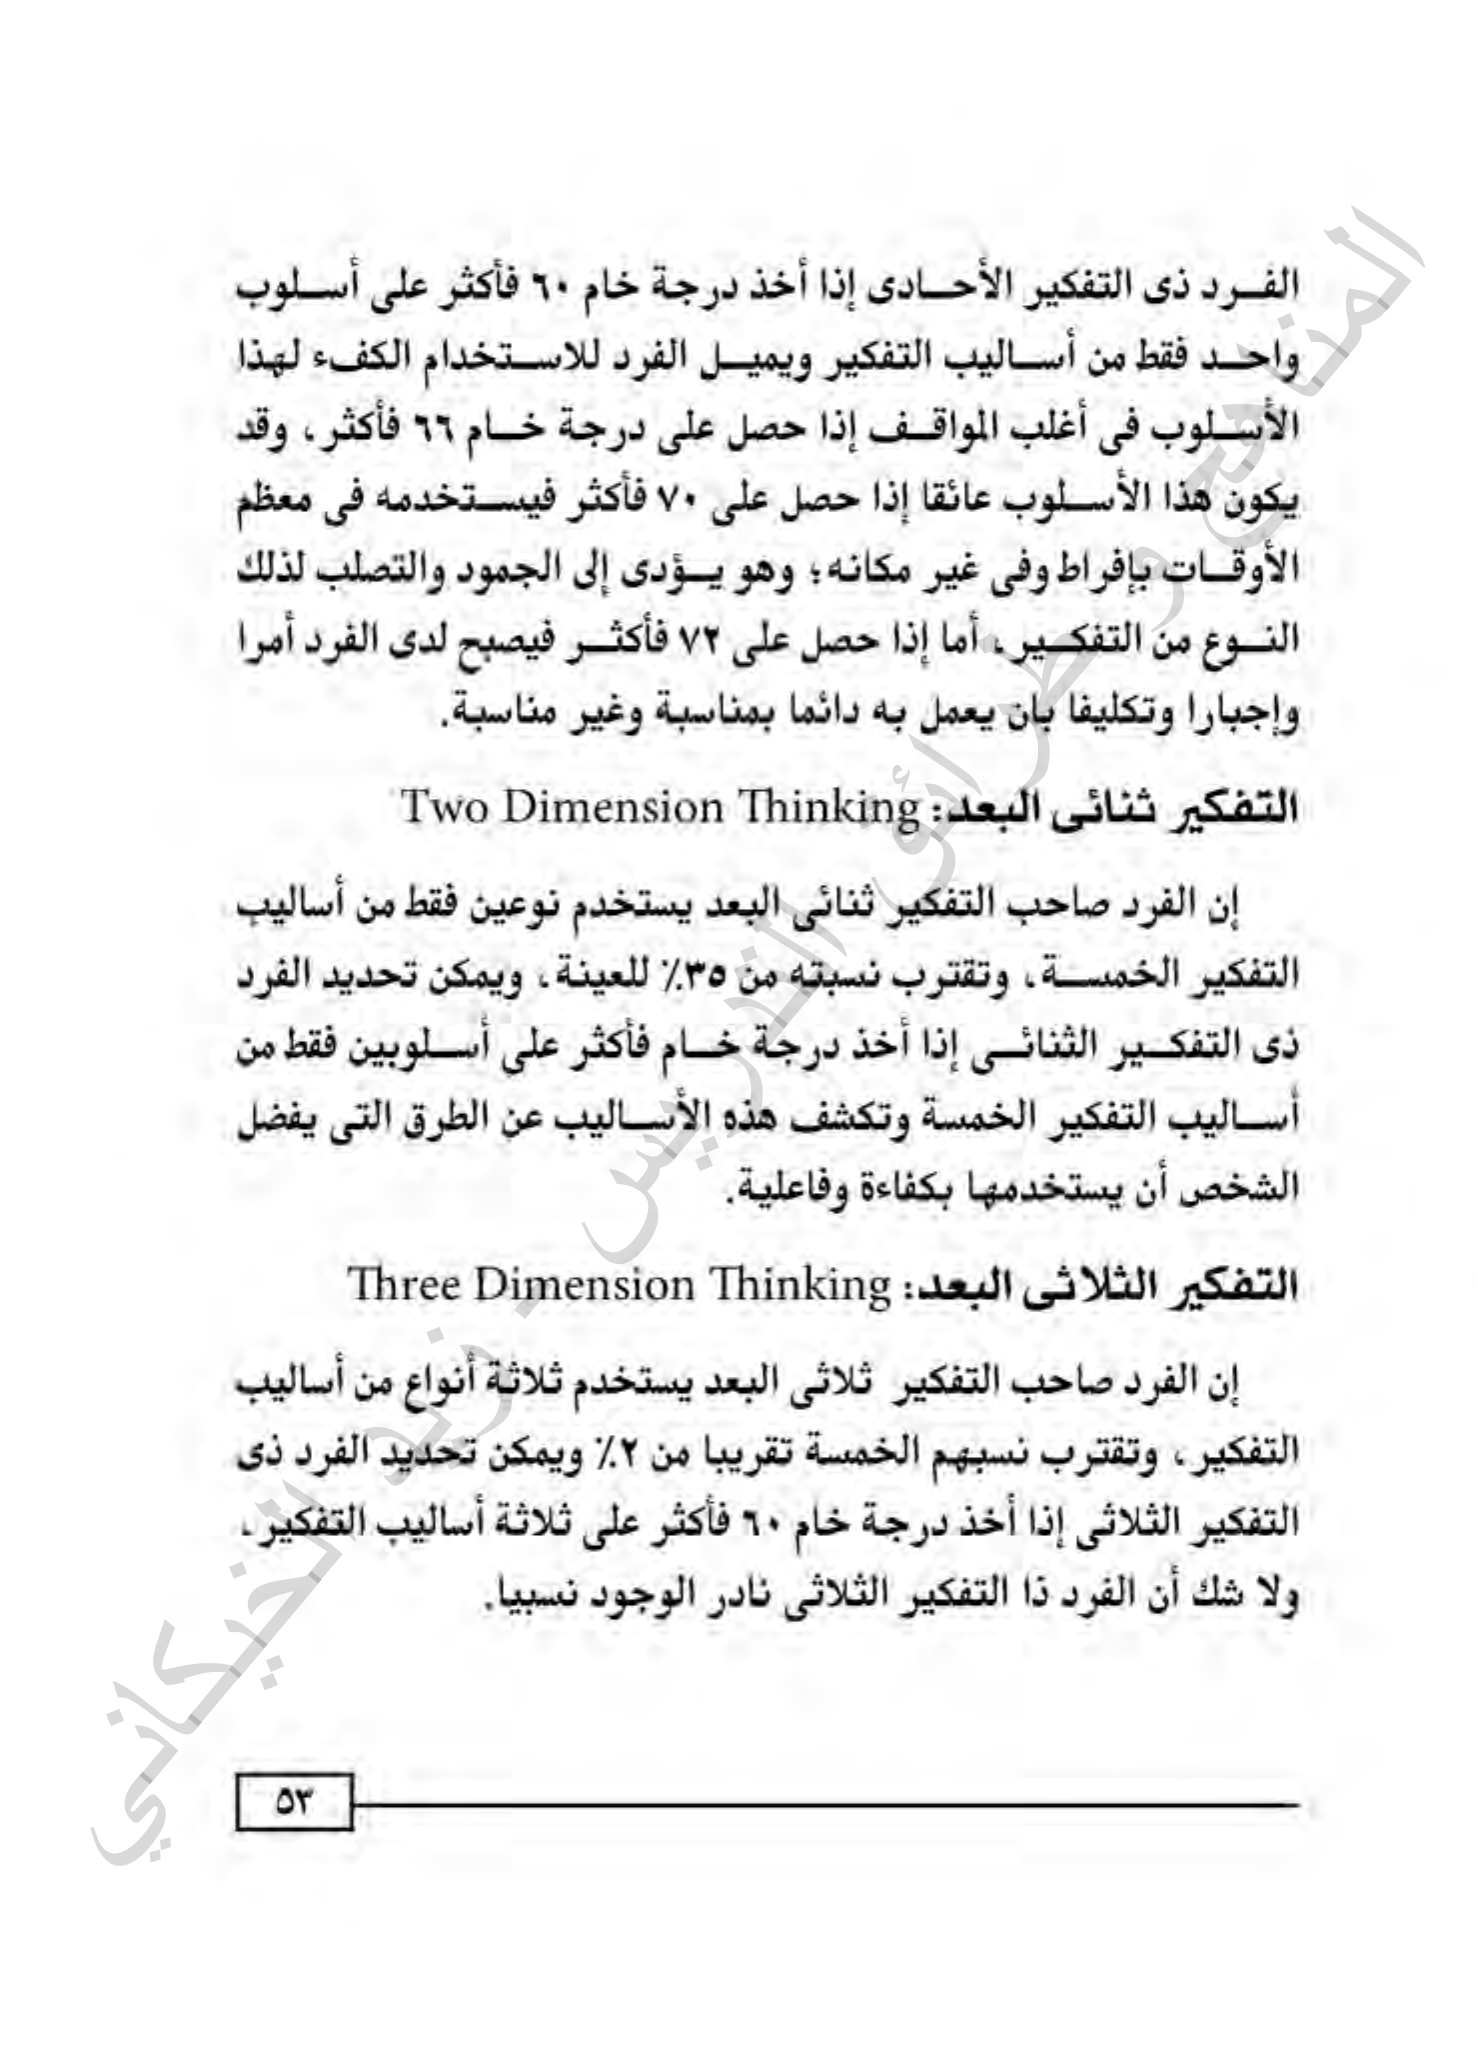 الفرد ذى التفكير الأحادى إذا أخذ درجة خام ٦٠ فأكثر على أسلوب
واحد فقط من أساليب التفكير ويميل الفرد للاستخدام الكفء لهذا
الأسلوب فى أغلب المواقف إذا حصل على درجة خام ٦٦ فأكثر، وقد
يكون هذا الأسلوب عائقا إذا حصل على ٧٠ فأكثر فيستخدمه فى معظم
الأوقات بإفراط وفى غير مكانه؛ وهو يؤدى إلى الجمود والتصلب لذلك
النوع من التفكير، أما إذا حصل على ٧٢ فأكثر فيصبح لدى الفرد أمرا
وإجبارا وتكليفا بأن يعمل به دائما بمناسبة وغير مناسبة.
التفكير ثنائى البعد: Two Dimension Thinking
إن الفرد صاحب التفكير ثنائى البعد يستخدم نوعين فقط من أساليب
التفكير الخمسة، وتقترب نسبته من ٣٥٪ للعينة، ويمكن تحديد الفرد
ذى التفكير الثنائى إذا أخذ درجة خام فأكثر على أسلوبين فقط من
أساليب التفكير الخمسة وتكشف هذه الأساليب عن الطرق التى يفضل
الشخص أن يستخدمها بكفاءة وفاعلية.
التفكير الثلاثى البعد: Three Dimension Thinking
إن الفرد صاحب التفكير ثلاثى البعد يستخدم ثلاثة أنواع من أساليب
التفكير، وتقترب نسبهم الخمسة تقريبا من ٢٪ ويمكن تحديد الفرد ذى
التفكير الثلاثى إذا أخذ درجة خام ٦٠ فأكثر على ثلاثة أساليب التفكير،
ولا شك أن الفرد ذا التفكير الثلاثى نادر الوجود نسبيا.
٥٣
المناهج وطرائق التدريس - زيد الخيكاني